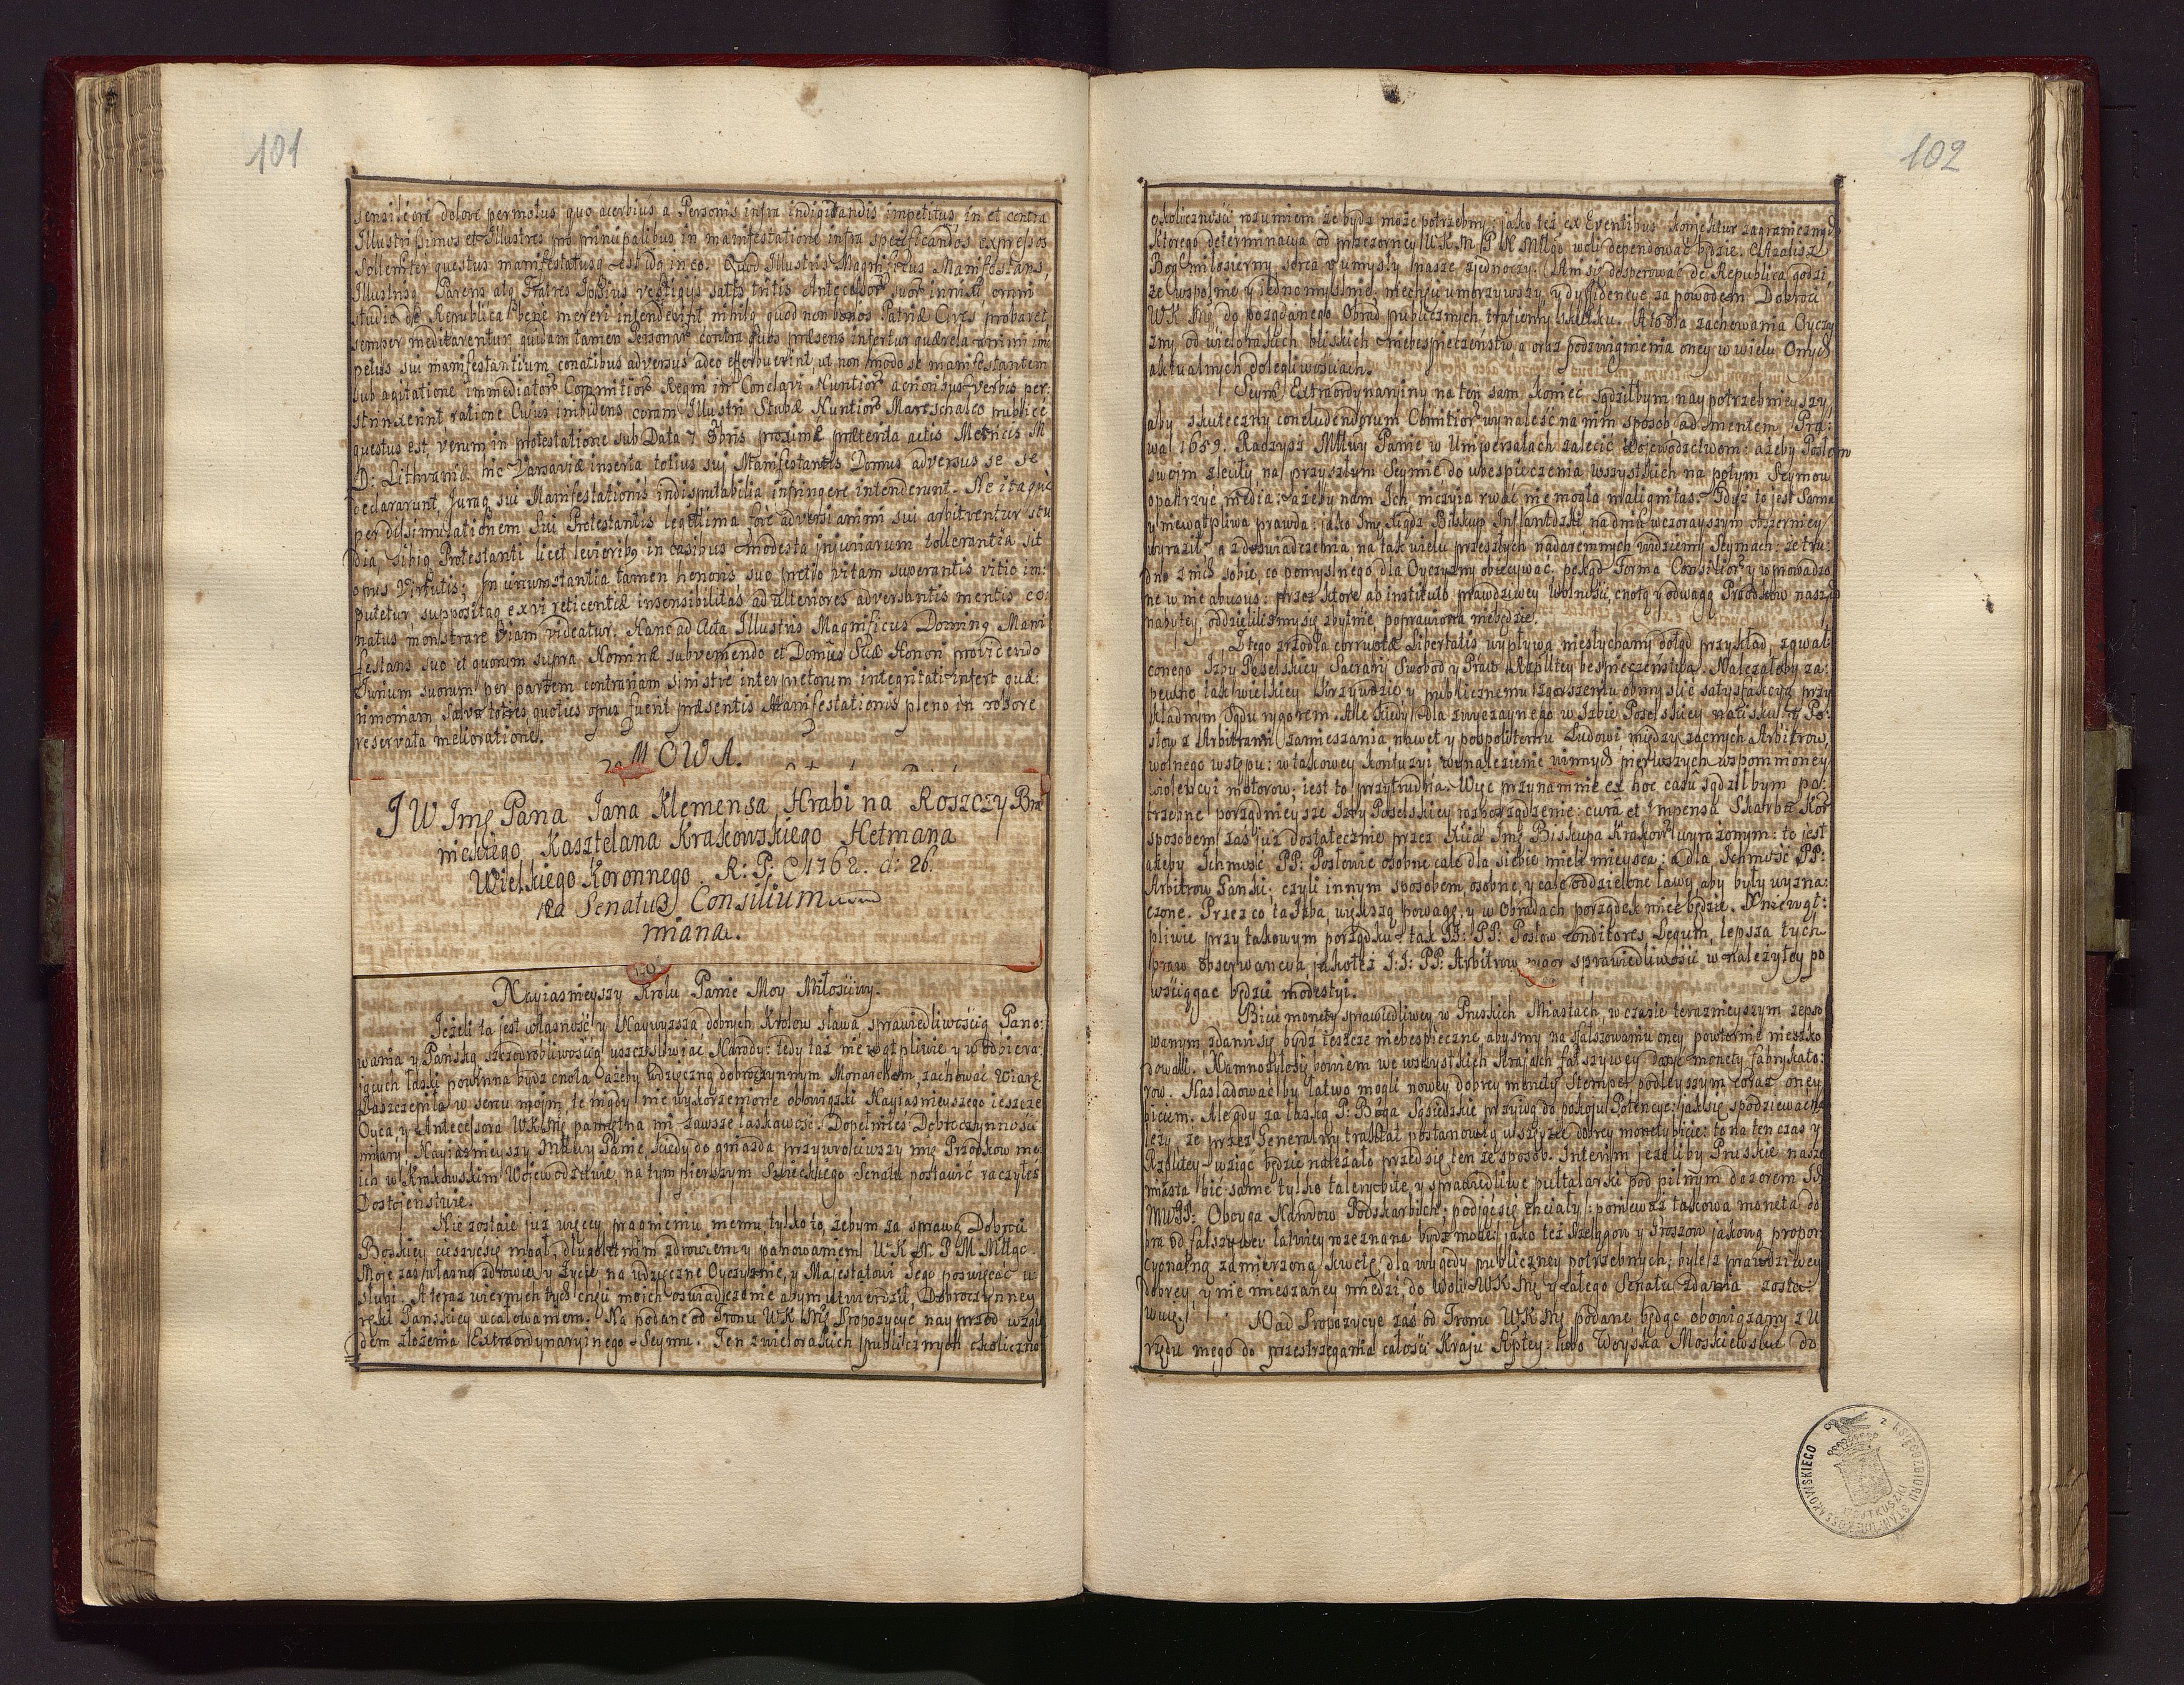 101
sensili cord dolore permotus quo acerbius a Personis infra indigitandis impetitus, in et contra
Illustrissimos et Illustres pro principalibus in manifestatione infra specificandos expressos
Sollemter questus manifestatusq est ido in eo. Quod Illustris Magnificus Manifestans,
Illustrisq Parens atq Fratres Ipsius vestigijs satis tritis Antecessor suor innixi omni
studio de Republica bene mereri intenderint nihilq quod non bonos Patriæ Cives probaret
semper meditarentur quidam tamen Personar contra quas præsens infertur quærela animi im
petus sui manifestantium conatibus adversus adeo efferbuerint, ut non modo se manifestantem
sub agitatione immediator Commitior Regni in Conclavi Nuntior acrioribus verbis per:
strinxerint ratione Cujus imbidens coram Illustri Stubæ Nuntior Mareschalco publice
questus est, verum in protestatione sub Data 7 8bris proxime præterita actis Metrices M
D: Lithvaniæ hic Varsaviæ inserta totius sui Manifestantis Domus adversus se se
declararunt Juraq sui Manifestationis indisputabilia infringere intenderunt. Ne itaque
per dissimulationem Sui Protestantis legittima fore adversi animi sui arbitrentur stu
dia, sibiq Protestanti licet levioribq in casibus modesta injuriarum tollerantia sit
opus Virtutis; in circumstantia tamen honoris suo pretio vitam superantis vitio im:
putetur suppositaq ex vi reticentiæ insensibilitas ad ulteriores adversantis mentis co:
natus monstrare Viam videatur. Hanc ad Acta Illustris Magnificus Dominq Mani
festans suo et quorum supra Nominæ subveniendo et Domus Suæ Honori providendo
Jurium suorum per partem contrariam sinistre interpretorum integritati infert quæ:
rimoniam Salva toties quoties opus fuerit præsentis Manifestationis pleno in robore
reservata melioratione.
MOWA.
JW Jmę Pana Jana Klemensa Hrabi na Roszczy Bra
nickiego Kasztelana Krakowskiego Hetmana
Wielkiego Koronnego. R: P: 1762. d: 26.
8bra Senatus Consilium
miana.
Nayiasnieyszy Krolu Panie Moy Miłosciwy.
Jeżeli ta jest własność y Naywyzsza dobrych Krolow sława, sprawiedliwością Pano:
wania y Pańską szczodrobliwością uszczęśliwiać Narody: tedy taż niewątpliwie y w odbiera:
jących łaski powinna bydz cnota ażeby wdzięczną dobroczynnym Monarchom zachować Wiarę
Zaszczepiła w sercu moim, te nigdy nie wykorzenione obowiązki Nayiasnieyszego ieszcze
Oyca, y Antecessora WKMę pamiętna mi zawsze łaskawość. Dopełniłeś Dobroczynnosci
miary Nayiasnieyszy Miłwy Panie kiedy do gniazda przywrociwszy mię Przodkow mo:
ich w Krakowskim Wojewodztwie, na tym pierszym Swieckiego Senatu postawić raczyłes
Dostojenstwie.
Nie zostaie już więcey pragnieniu memu, tylko to, żebym za sprawą Dobroci
Boskiey cieszyć się mogł, długoletnim zdrowiem y panowaniem WKM P M Miłgo.
Moje zaś własne zdrowie, y życie na udzięczne Oyczyznie, y Majestatowi Jego poswięcać u:
sługi. A teraz wiernych tych chęci moich oswiadczenie abym utwierdził Dobroczynney
ręki Pańskiey ucałowaniem. Na podane od Tronu WKMę Propozycye nay przod wzglę
dem złożenia Extraordynaryinego Seymu. Ten z wielorakich publicznych okoliczno

102
okoliczności rozumiem że bydz może potrzebny jako też ex Eventibus konjektur zagranicznych
Ktorego determinacya od przezorney WKM P M Miłgo woli dependować będzie. Azalisz
Bog miłosierny, serca y umysły nasze zjednoczy. Ani się desperować de Republica godzi,
że wspolnie y jednomyslnie niechęci umorzywszy, y dyffidencye za powodem Dobroci
WKMę do pożądanego Obrad publicznych trafiemy skutku. A to dla zachowania Oyczy
zny od wielorakich bliskich niebespieczeństw a oraz podzwignienia oney w wielu Onych
aktualnych dolegliwościach.
Seym Extraordynaryiny na ten sam koniec sądziłbym naypotrzebnieyszy
aby skuteczny concludendorum Comitior wynaleść na nim sposob ad mentem Pra:
wa 1689. Raczysz Miłwy Panie w Uniwersałach zalecić Wojewodztwom: ażeby Posłom
swoim zleciły, na przyszłym Seymie do ubespieczenia wszystkich na potym Seymow
opatrzyć media: ażeby nam Ich niczyia rwać nie mogła malignitas. Gdyz to jest sama
y niewątpliwa prawda: jako Jmę Xiądz Biskup Inflantdzki na dniu wczorayszym obszerniey
wyraził, a z doswiadczenia na tak wielu przeszłych nadaremnych widziemy Seymach: że tru:
dno z nich sobie, co pomyslnego dla Oyczyzny obiecywać, pokąd Forma Consilior y wprowadzo
ne w nie abusus: przez ktore ab instituto prawdziwey Wolności, cnotą y odwagą Przodkow naszych
nabytey, oddzielilismy się zbytnie, poprawiona niebędzie.
Z tego zrzodła corruptæ Libertatis wypływa niesłychany dotąd przykład zgwał:
conego Izby Poselskiey Sacrarij Swobod y Praw Rzpltey bespieczenstwa. Należałoby za:
pewne tak wielkiey Krzywdzie, y publicznemu zgorszeniu obmyslić satysfakcyą przy:
kładnym Sądu rygorem. Ale kiedy dla zwyczaynego w Izbie Poselskiey natisku y Po:
słow z Arbitrami zamieszania nawet y pospolitemu Ludowi między zacnych Arbitrow,
wolnego wstępu: w takowey konfuzyi wynalezienie winnych pierwszych wspomnioney
wiolencyi motorow; jest to przytrudna. Więc przynamnie ex hoc casu sądziłbym po:
trzebne porządnieysze Izby Poselskiey rozporządzenie: cura et impensa Skarbu Kor
sposobem zas juz dostatecznie przez Xcia Jmę Biskupa Krakow: wyrażonym: to jest
ażeby Ichmość PP: Posłowie osobne całe dla siebie mieli mieysca: a dla Ichmość PP:
Arbitrow Ganki, czyli innym sposobem osobne, y całe oddzielne ławy, aby były wyzna:
czone. Przez co ta Izba, większą powagę, y w Obradach porządek miec będzie. Y niewąt:
pliwie przy takowym porządku tak JJ: PP: Posłow Conditores Legum, lepsza tych
praw observancya jakoteż J:J: PP: Arbitrow sprawiedliwości w należytey po
wsciągac będzie modestyi.
Bicie monety sprawiedliwey w Pruskich Miastach, w czasie terazńieyszym zepso
wanym zdami się bydź jeszcze niebespieczne, abysmy na fałszowaniu oney powtornie nieszko
dowali. Namnożyłosię bowiem we wszystkich Krajach fałszywey dosyć monety fabrykato:
row. Nasladowaćby łatwo mogli nowey dobrey monety Stempel podleyszym coraz oney
biciem. Ale gdy za łaską P: Boga Sąsiedzkie przyidą do pokoju Potencye: jak się spodziewać na
leży, że przez Generalny traktat postanowią wszędzie dobrey monety bicie: to na ten czas y
Rzpltey wziąć będzie należało przed się ten że sposob. Interim jezeliby Pruskie nasze
miasta bić same tylko talery bite, y sprawiedliwe pułtalarki pod pilnym dozorem JJ:
MWJJ: Oboyga Narodow Podskarbich, podjąć się chciały (: ponieważ takowa moneta do
bra od fałszywey łatwiey rozeznana bydź może:) jako też Szelągow y Groszow jakową propor
cyonalną zamierzoną kwotę, dla wygody publiczney potrzebnych; byle z prawdziwey
dobrey, y nie mieszaney miedzi, do woli WKMę y całego Senatu zdania zosta:
wuię.
Nad Propozycye zaś od Tronu WKMę podane będąc obowiązany z U
rzędu mego do przestrzegania całości Kraju Rptey: lubo Woyska Moskiewskie do
Z KSIĘGOZBIORU STANISŁ. KOSSAKOWSKIEGO
WOJTKUSZKI